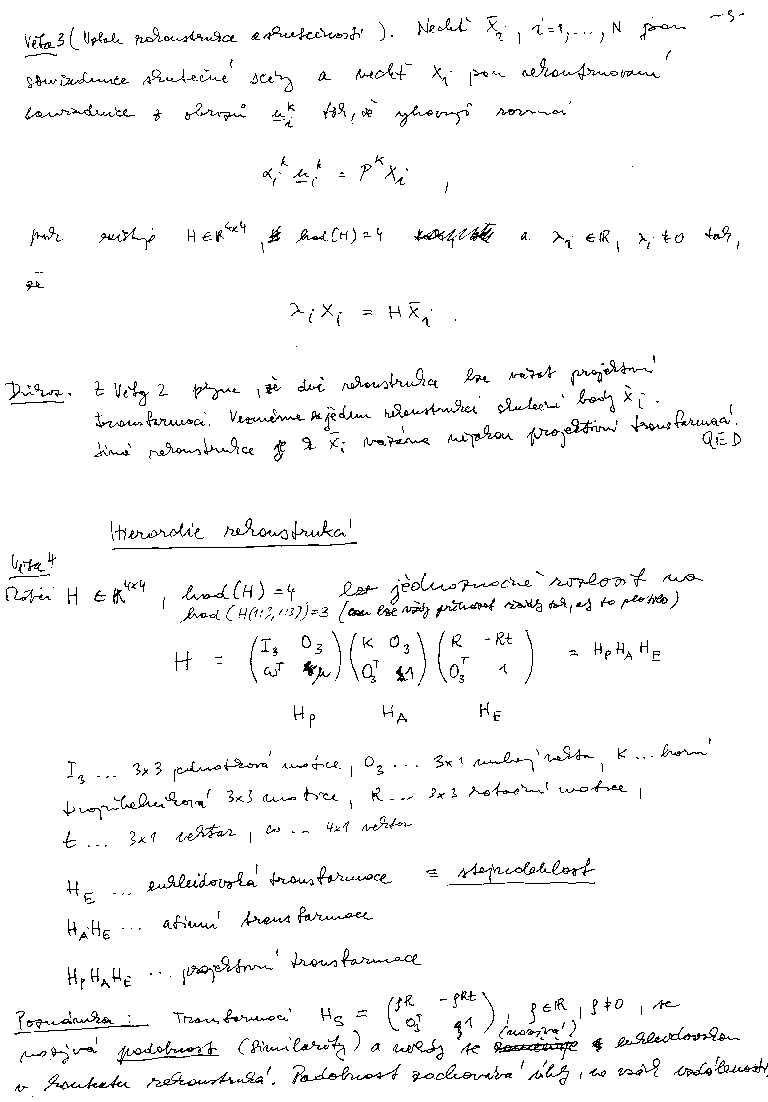 -3-
Věta 3 (Vztah rekonstrukce a skutečnosti). Nechť X̄_i, i=1,...,N jsou
souřadnice skutečné scény a nechť X_i jsou rekonstruované
souřadnice z obrazů u_i^k tak, že vyhovují rovnici
α_i^k u_i^k = P^k X_i ,
pak existuje H ∈ R^{4×4}, hod(H)=4 a λ_i ∈ R, λ_i ≠ 0 tak,
že
λ_i X_i = H X̄_i .
Důkaz. Z Věty 2 plyne, že dvě rekonstrukce lze vázat projektivní
transformací. Vezměme za jednu rekonstrukci skutečné body X̄_i.
Jiná rekonstrukce je z X̄_i vázána nějakou projektivní transformací.
QED
Hierarchie rekonstrukcí
Věta 4
Matici H ∈ R^{4×4}, hod(H)=4 lze jednoznačně rozložit na
hod(H(1:3,1:3))=3 (lze vždy přerovnat řádky tak, aby to platilo)
H = (I_3 O_3; ω^T μ)(K O_3; O_3^T 1)(R -Rt; O_3^T 1) = H_P H_A H_E
H_P H_A H_E
I_3 ... 3×3 jednotková matice, O_3 ... 3×1 nulový vektor, K ... horní
trojúhelníková 3×3 matice, R ... 3×3 rotační matice,
t ... 3×1 vektor, ω ... 4×1 vektor
H_E ... eukleidovská transformace ≡ stejnolehlost
H_A H_E ... afinní transformace
H_P H_A H_E ... projektivní transformace
Poznámka: Transformaci H_S = (ρR -ρRt; O_3^T 1), ρ ∈ R, ρ ≠ 0, se
(nazývá)
nazývá podobnost (similarity) a někdy se eukleidovskou
v kontextu rekonstrukcí. Podobnost zachovává úhly, ne však vzdálenosti,